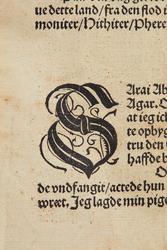 ue dette land/fra den flod i
moniter/Hithiter/Phere
SArai Ab
Agar. O
at ieg ick
te opbyg
tru den
haffde b
O
de vndfangit/actede hun
wret. Jeg lagde min pige